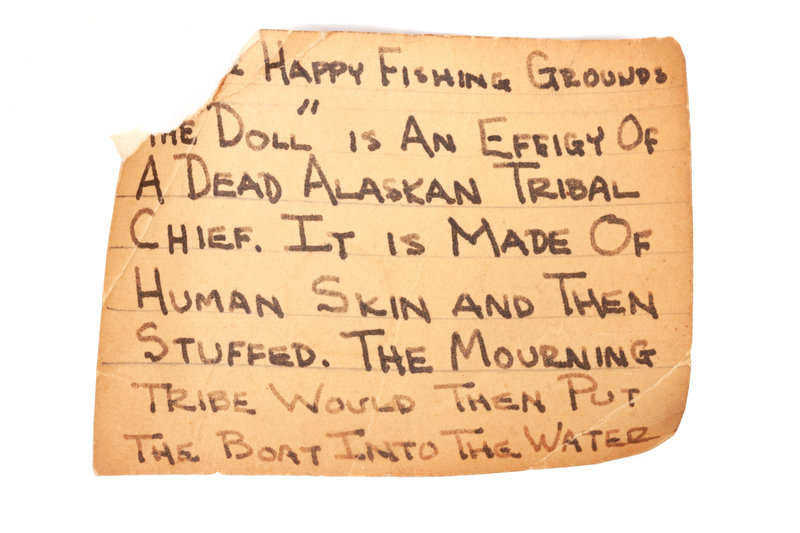 Happy Fishing Grounds
The "Doll" is An Effigy Of
A Dead Alaskan Tribal
Chief. It is Made Of
Human Skin and Then
Stuffed. The Mourning
Tribe Would Then Put
The Boat Into The Water